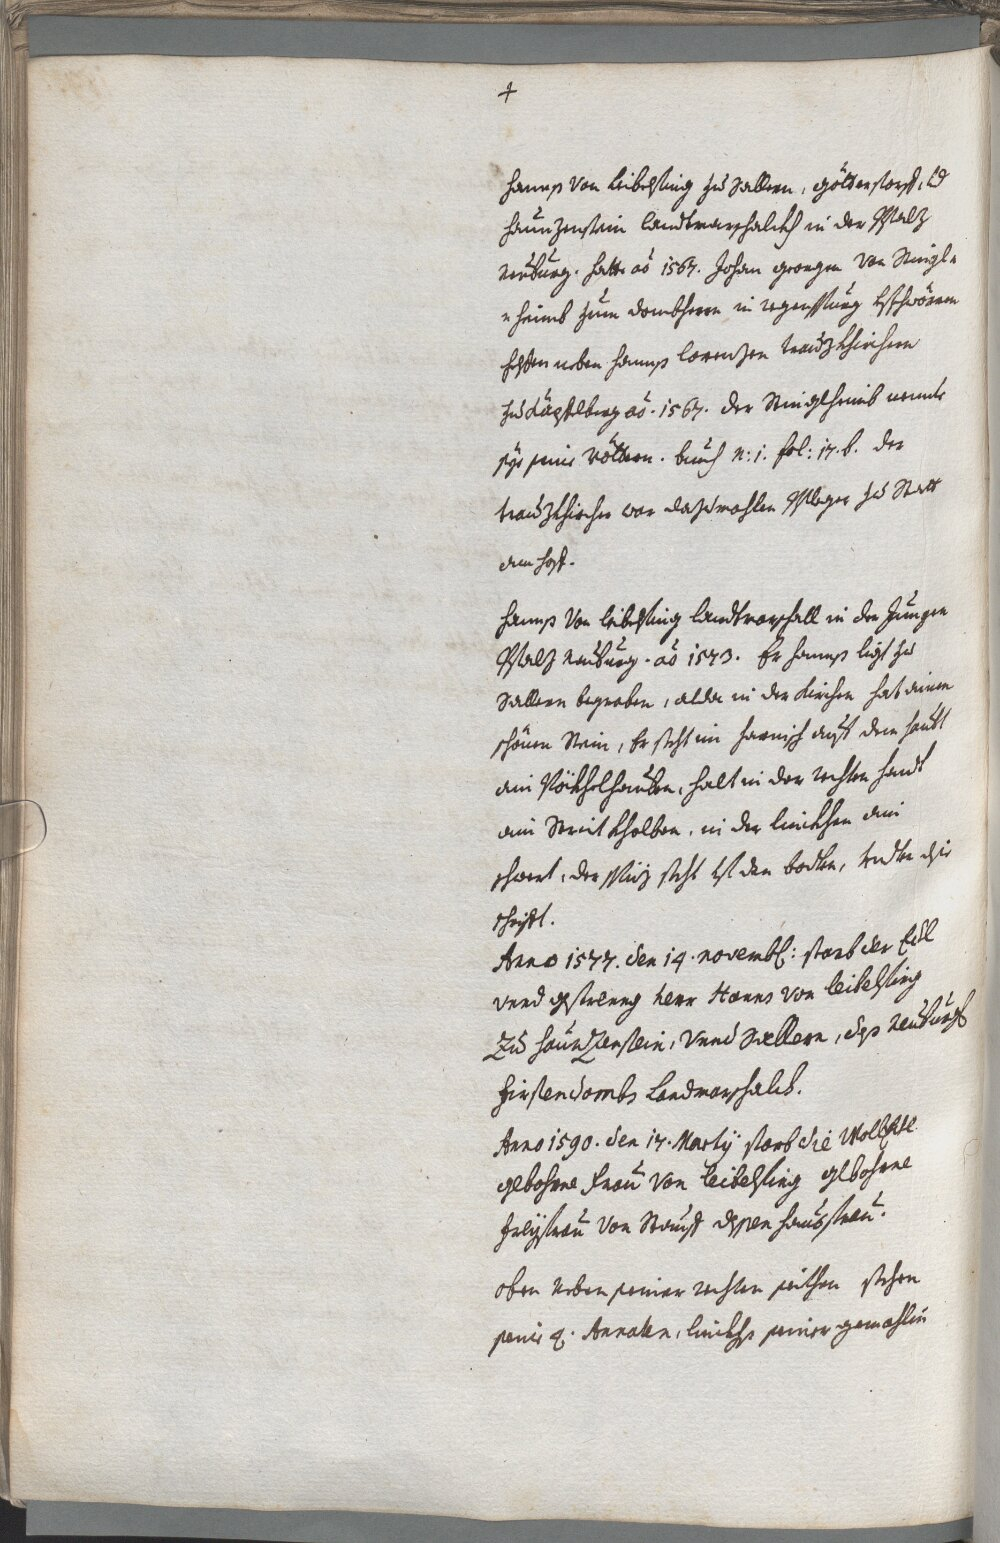 +
Hannß Von Leibelfing zu Sallern, göllerstorff, Id
Haunzenstein landtmarschalckh in der Pfalz
Neuburg. hatte aö 1567. Johan georgen Von Stingl-
-haimb zum dombherrn in regenspurg beschwören
helffen neben Hannß lorenzen trauzkhirchen
zu Käpflberg aö. 1567. der Stinglhaimb nennte
sye seine Vöttern. buech N: 1. fol: 17. b. der
trauzkhircher war dazumahlen Pfleger zu Statt
am hoff.
Hannß Von leibelfing landtmarschall in der Jungen
Pfalz Neuburg. aö 1573. Er Hannß ligt zu
Sallern begraben, alda in der Kirchen hat ainen
schönen Stein, Er steht im harnisch auff dem haubt
ain Pöckhelhauben, halt in der rechten handt
ain Streit kholben, in der linckhen ain
schwert, der spüz steht bey den boden, undten die
schrifft.
Anno 1577. den 14. novemb: starb der Edl
vnnd gestreng herr Hanns Von leibelfing
Zu haunzenstein, Vnnd Sallern, deß Neuburgl
firstendombs Landmarschalch.
Anno 1590. den 17. Martÿ starb die Wolledle
gebohrne Frau Von leibelfing gebohrne
freÿfrau Von Stauff dessen hausfrau.
oben neben seiner rechten seithen stehen
seine 4. Annaten, linckhs seiner gemahlin